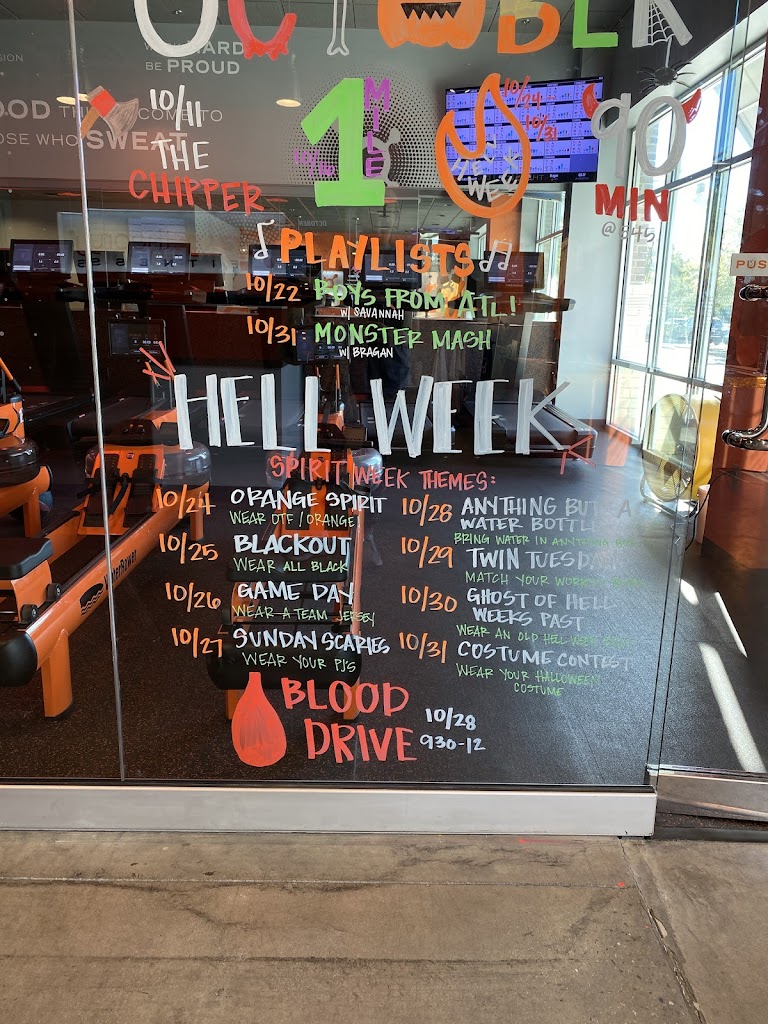 OCTOBER
HARD
BE PROUD
SWEAT
10/11
THE
CHIPPER
1
MILE
10/24
10/31
HELL
WEEK
90
MIN
@ 845
PUS
PLAYLISTS
10/22: BOYS FROM ATL!
W/ SAVANNAH
10/31: MONSTER MASH
W/ BRAGAN
HELL WEEK
SPIRIT WEEK THEMES:
10/24 ORANGE SPIRIT
WEAR OTF / ORANGE
10/25 BLACKOUT
WEAR ALL BLACK
10/26 GAME DAY
WEAR A TEAM JERSEY
10/27 SUNDAY SCARIES
WEAR YOUR PJ'S
10/28 ANYTHING BUT A
WATER BOTTLE
BRING WATER IN ANYTHING
10/29 TWIN TUESDAY
MATCH YOUR WORKOUT
10/30 GHOST OF HELL
WEEKS PAST
WEAR AN OLD HELL WEEK
10/31 COSTUME CONTEST
WEAR YOUR HALLOWEEN
COSTUME
BLOOD
DRIVE
10/28
930-12
WaterRower